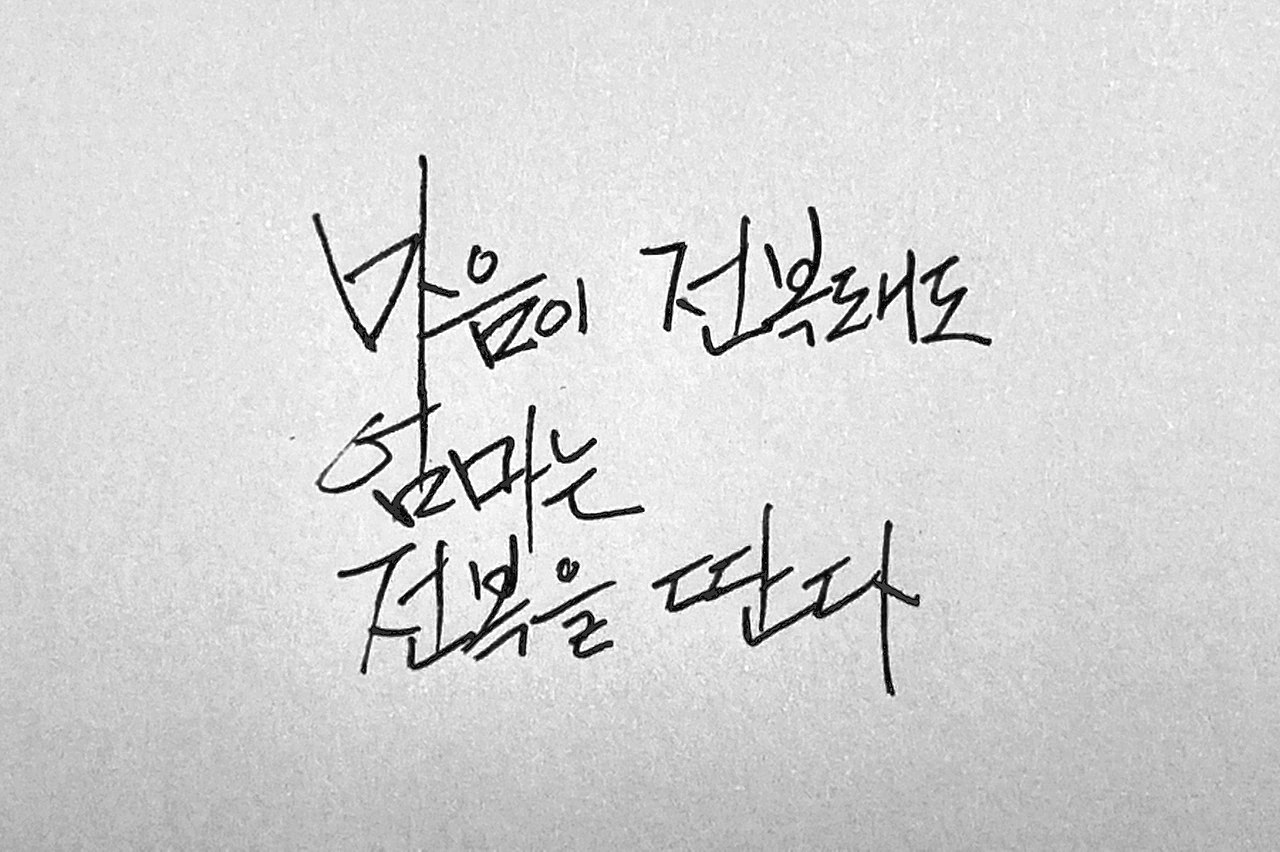 마음이 전복돼도
엄마는
전복을 딴다